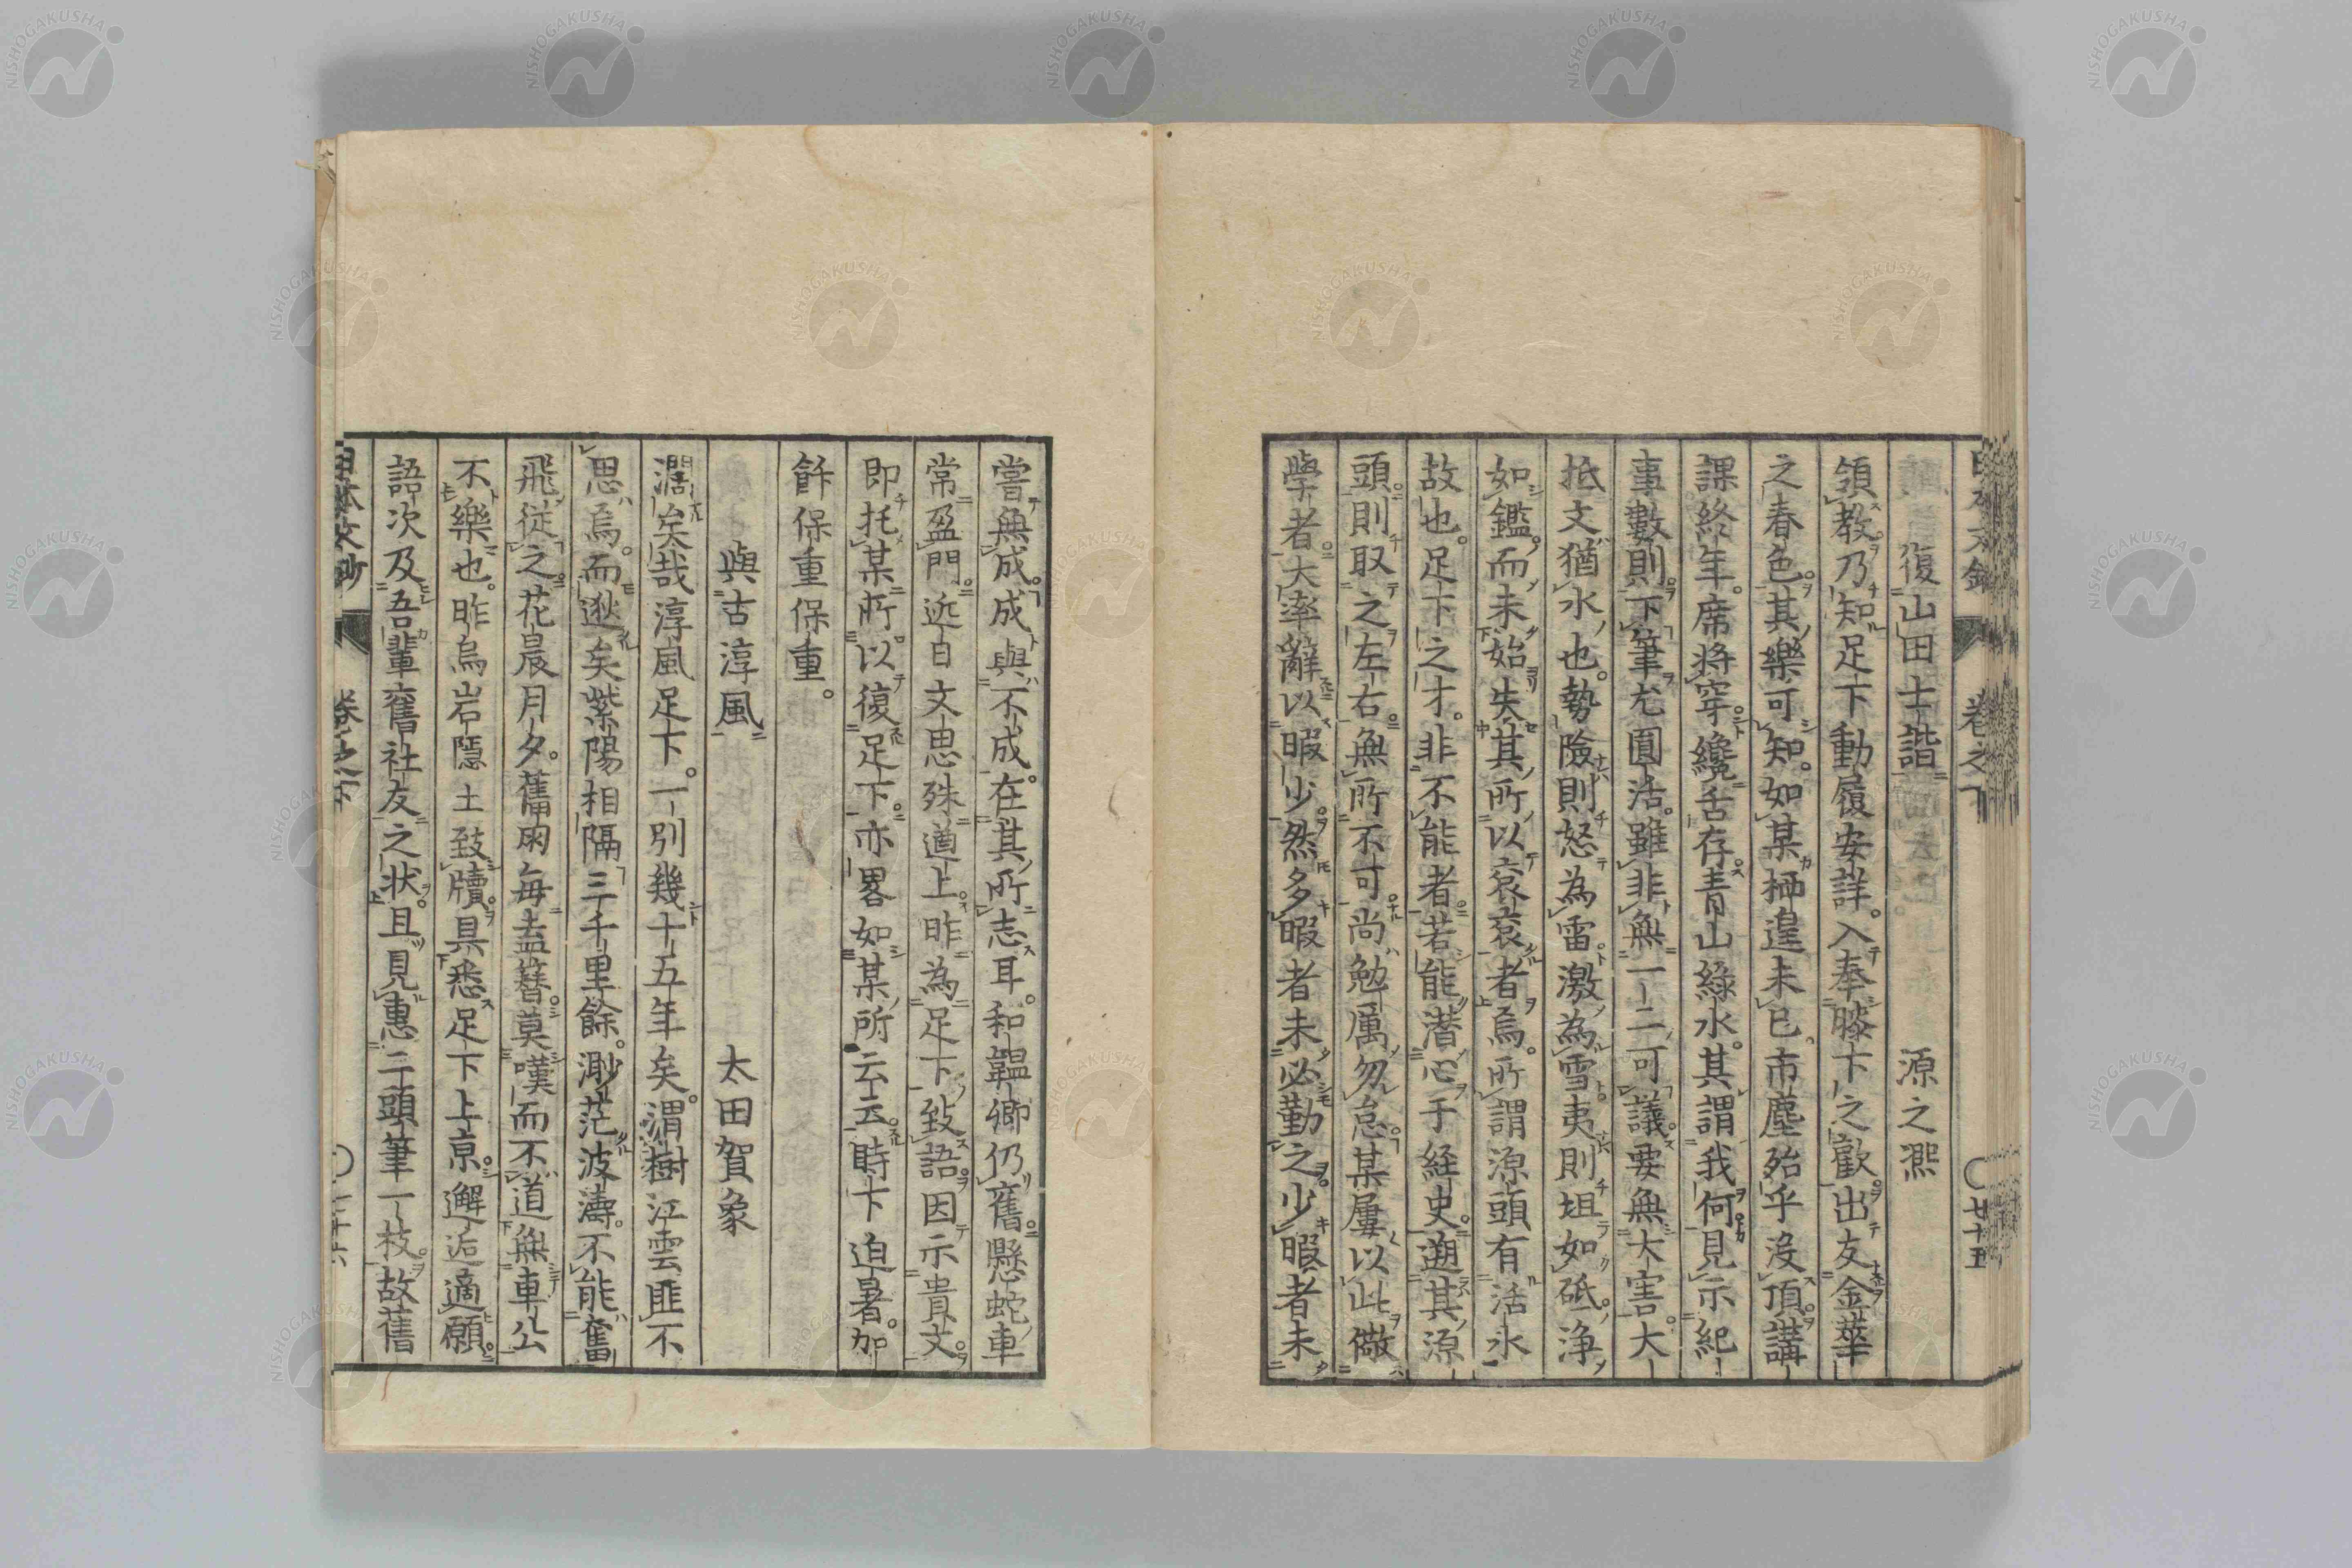 復山田士諧　源之熙
領教。乃知足下動履安詳。入奉膝下之歡。出友金華
之春色。其樂可知。如某栖遑未已。市塵殆乎沒頂。講
課終年。席將穿。纔舌存。青山綠水。其謂我何。見示紀
事數則。下筆尤圓活。雖非無一二可議。要無大害。大
抵文猶水也。勢險則怒為雷。激為雪。夷則坦如砥。浄
如鑑。而未始失其所以袞袞者焉。所謂源頭有活水
故也。足下之才。非不能者。若能潛心于経史。遡其源
頭。則取之左右。無所不可。尚勉厲勿怠。某屢以此儆
學者。大率辭以暇少。然多暇者未必勤之。少暇者未
嘗無成。成與不成。在其所志耳。和韞卿仍舊懸蛇車
常盈門。近日文思殊遒上。昨為足下致語。因示貴文。
即托某所以復足下。亦畧如某所云云。時下迫暑。加
飰保重保重。
與古淳風　太田賀象
濶矣哉淳風足下。一別幾十五年矣。渭樹江雲。匪不
思焉。而逖矣紫陽。相隔三千里餘。渺茫波濤。不能奮
飛從之。花晨月夕。舊雨毎盍簪。莫嘆而不道無車公
不樂也。昨烏岩隱士致牘。具悉足下上京。邂逅適願。
語次及吾輩舊社友之状。且見惠二頭筆一枝。故舊
日本文鈔　卷之下　廿五
日本文鈔　卷之下　二十六
NISHOGAKUSHA